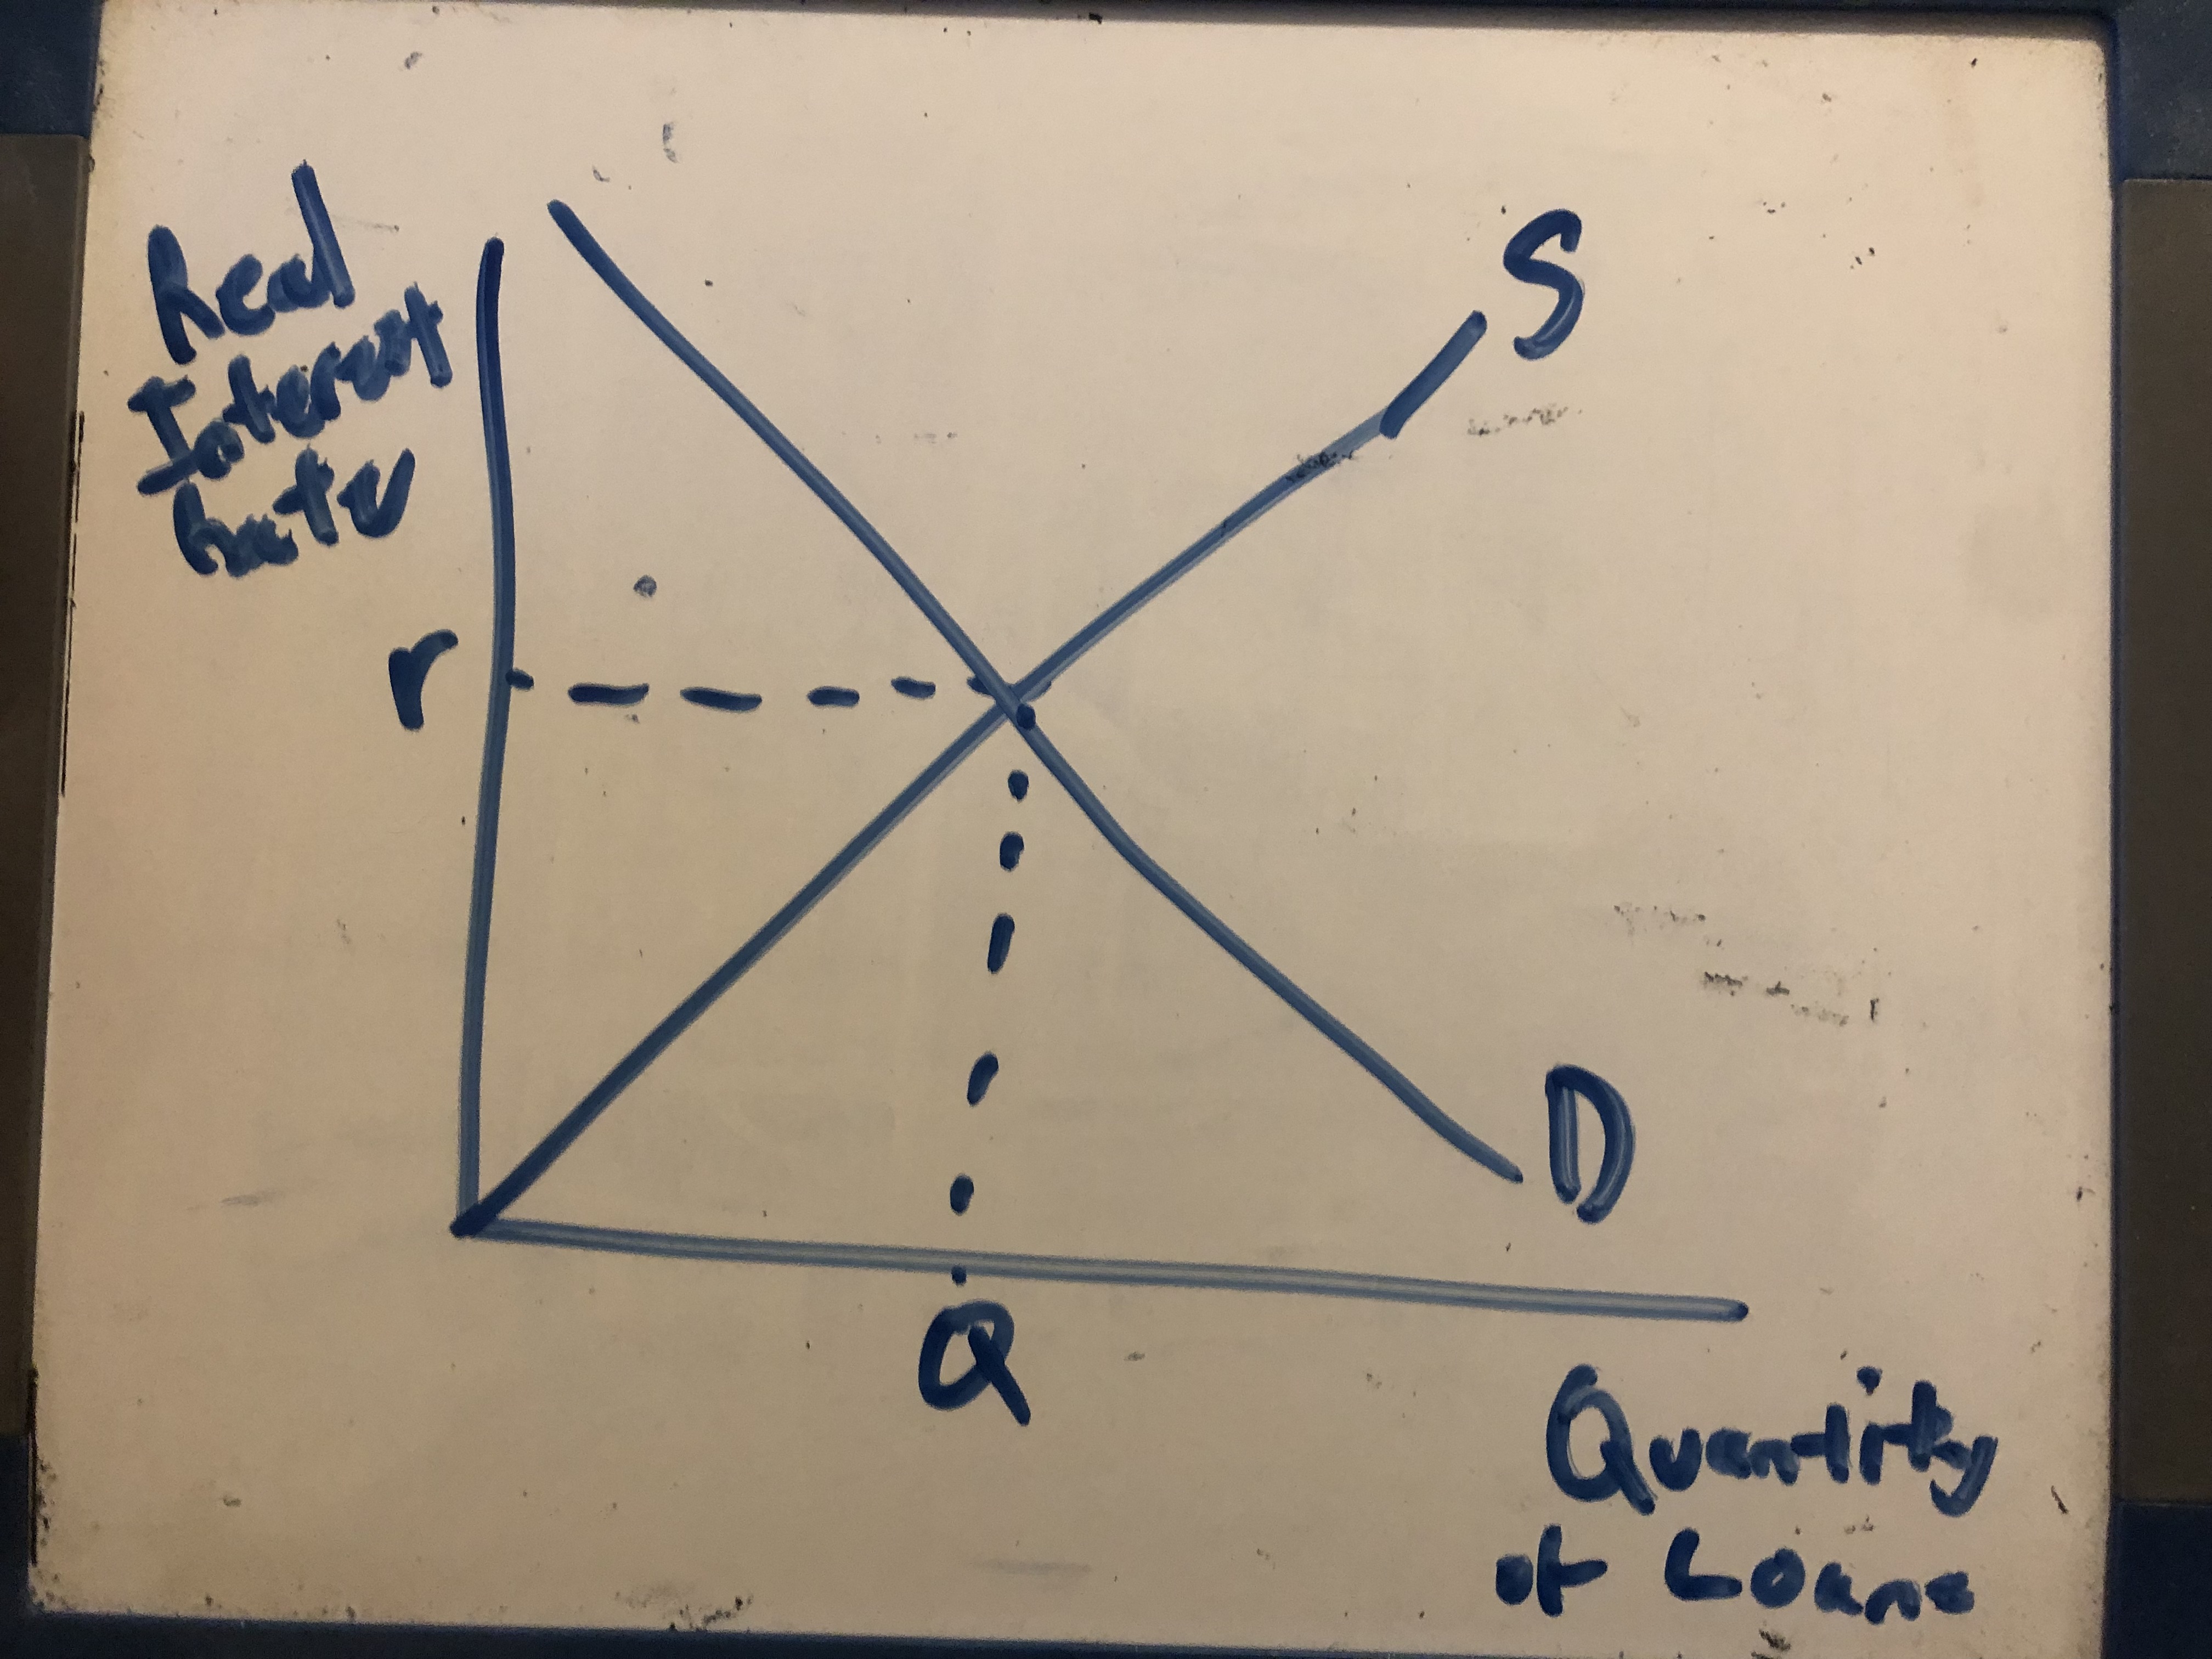 Real
Interest
Rate
S
r
D
Q
Quantity
of Loans